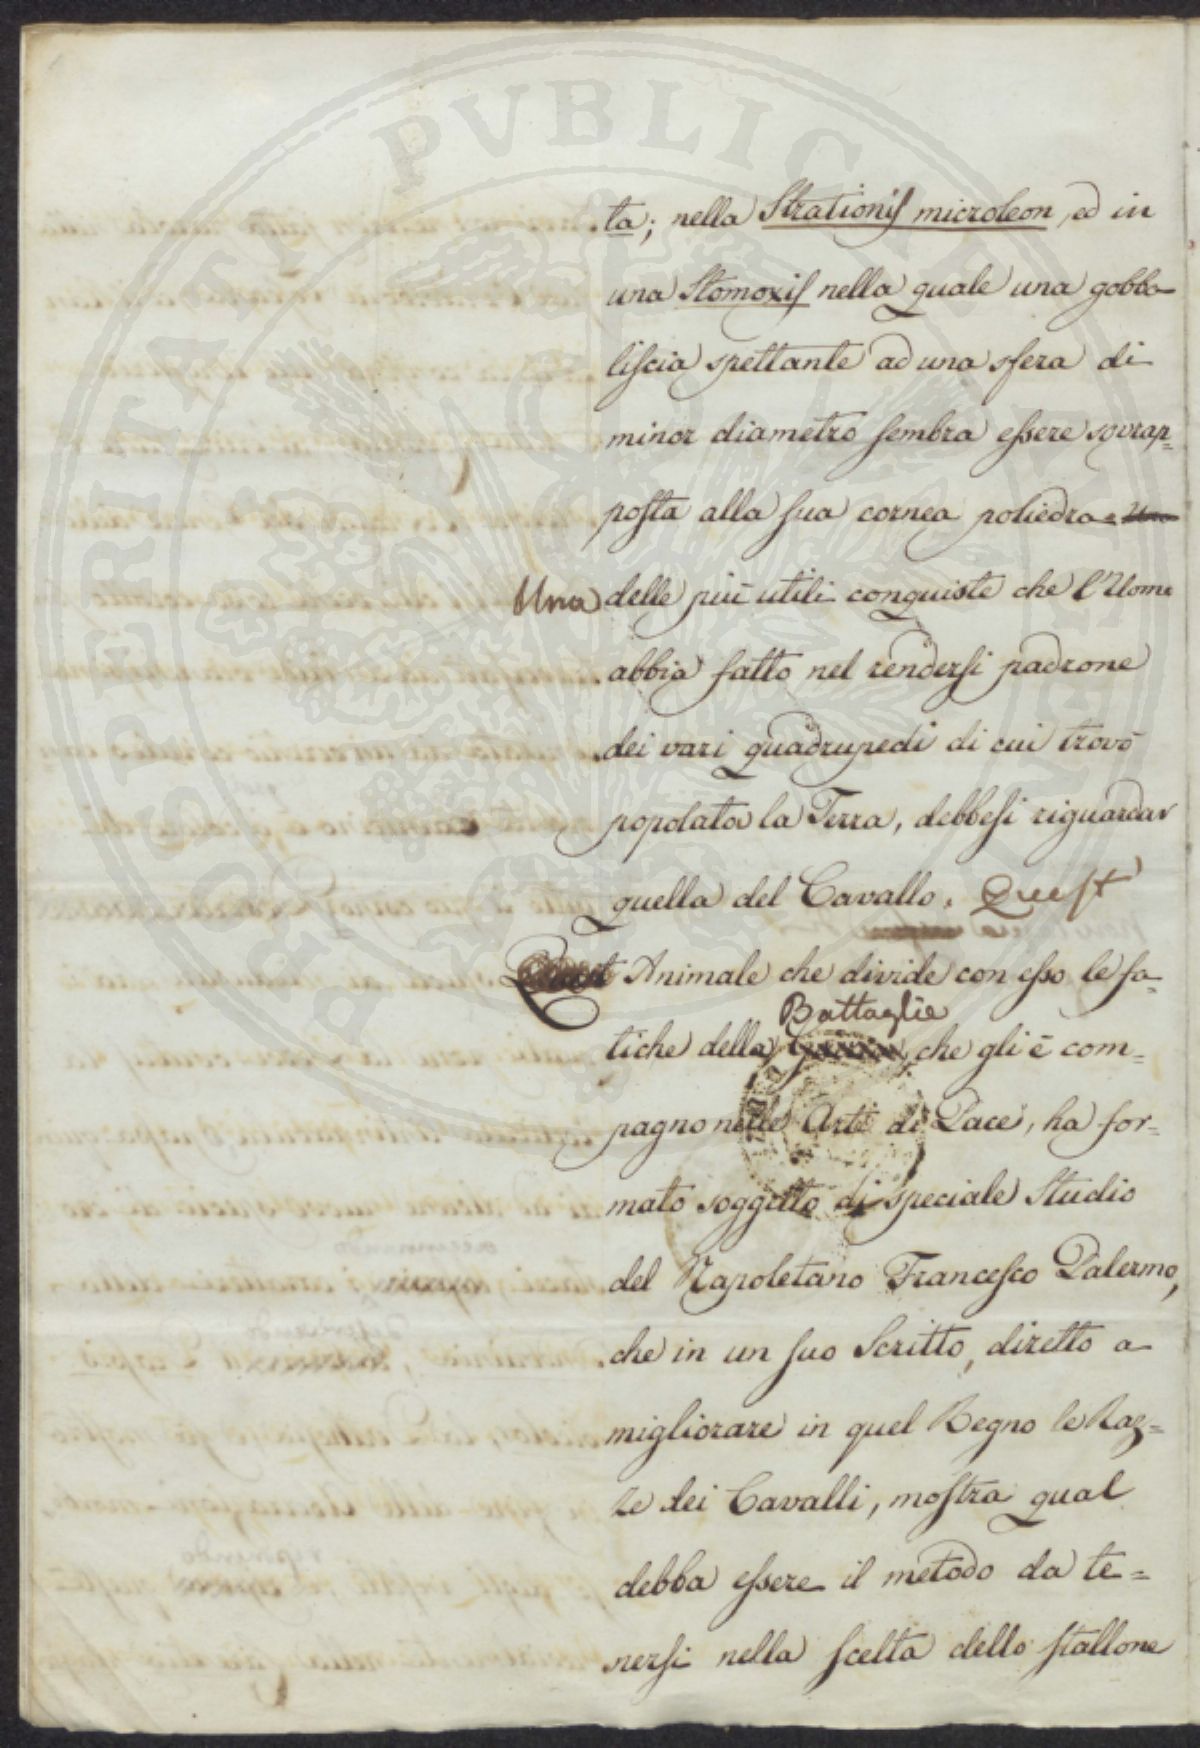 ta; nella Strationis microleon, ed in
una Stomoxis nella quale una gobba
liscia spettante ad una sfera di
minor diametro sembra essere sovrap=
posta alla sua cornea poliedra. Una
Una delle più utili conquiste che l'Uomo
abbia fatto nel rendersi padrone
dei vari quadrupedi di cui trovò
popolata la Terra, debbesi riguardar
quella del Cavallo. Quest
Quest Animale che divide con esso le fa=
Battaglie
tiche della Guerra, che gli è com=
pagno nelle Arti di Pace, ha for=
mato soggetto di speciale Studio
del Napoletano Francesco Palermo,
che in un suo Scritto, diretto a
migliorare in quel Regno le Raz=
ze dei Cavalli, mostra qual
debba essere il metodo da te=
nersi nella scelta dello stallone
PVBLICAE
PROSPERITATI